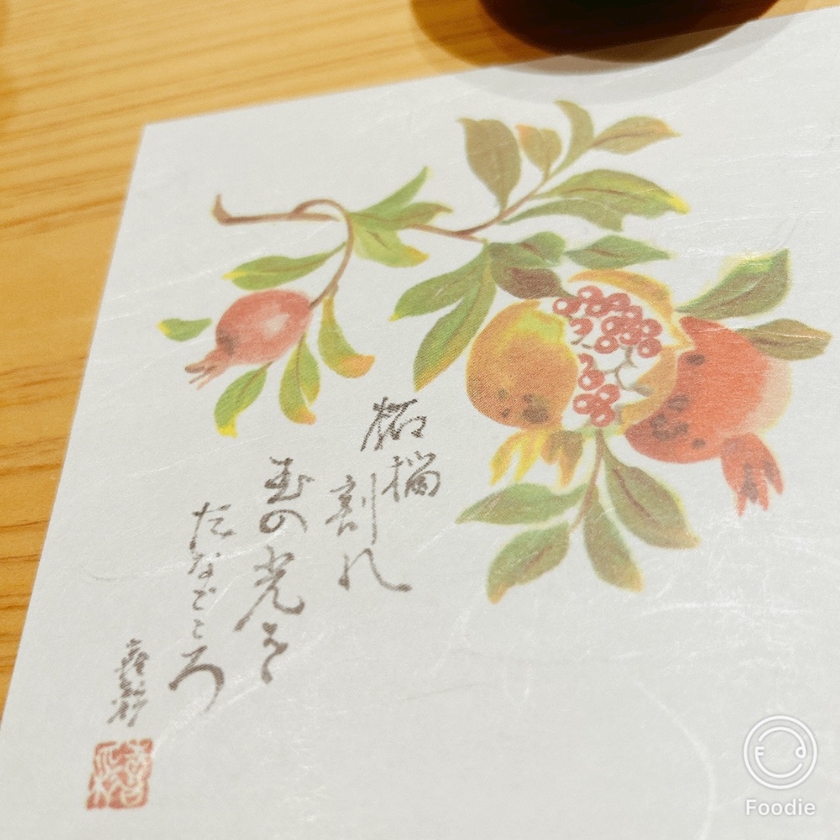 柘榴
割れ
玉の光を
たなごころ
Foodie